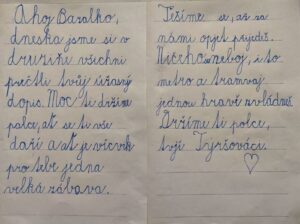 Ahoj Baralko,
dneska jsme si v
družině všichni
přečtli tvůj úžasný
dopis. Moc ti držíme
palce, ať se ti vše
daří a ať je výcvik
pro tebe jedna
velká zábava.
Těšíme se, až za
námi opět přijedeš.
Ničeho se neboj, i to
metro a tramvaj
jednou hravě zvládneš.
Držíme ti palce,
tvoji Tyršováci.